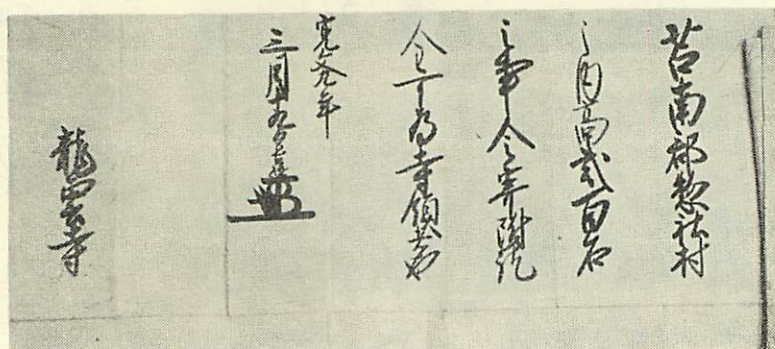 苫南郡惣社村
之内高弐百石
之事令寄附訖
全可為寺領者也
年
三月十九日
龍雲寺